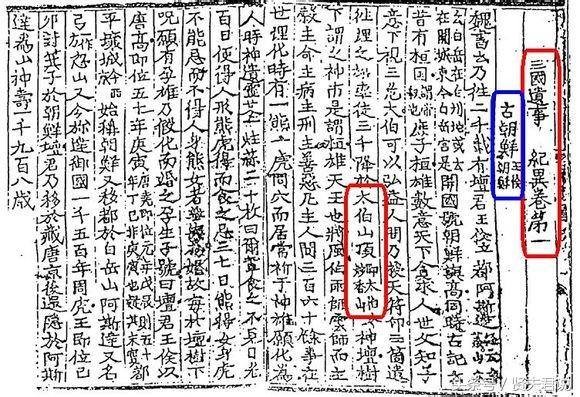 三國遺事 紀異卷第一
古朝鮮 王儉朝鮮
魏書云乃往二千載有壇君王儉立都阿斯達
云白岳在白州地或云在開城東今白岳宮是開國號朝鮮與高同時古記云
昔有桓因庶子桓雄數意天下貪求人世父知子
意下視三危太伯可以弘益人間乃授天符印三箇遣
往理之雄率徒三千降於太伯山頂即太伯今妙香山神壇樹
下謂之神市是謂桓雄天王也將風伯雨師雲師而主
穀主命主病主刑主善惡凡主人間三百六十餘事在
世理化時有一熊一虎同穴而居常祈于神雄願化為
人時神遺靈艾一炷蒜二十枚曰爾輩食之不見日光
百日便得人形熊虎得而食之忌三七日熊得女身虎
不能忌而不得人身熊女者無與為婚故每於壇樹下
呪願有孕雄乃假化而婚之孕生子號曰壇君王儉以
唐高即位五十年庚寅唐堯即位元年戊辰則五十年丁巳非庚寅也疑其未實都
平壤城今西京始稱朝鮮又移都於白岳山阿斯達又名
弓忽山又今彌達御國一千五百年周虎王即位己
卯封箕子於朝鮮壇君乃移於藏唐京後還隱於阿斯
達為山神壽一千九百八歲